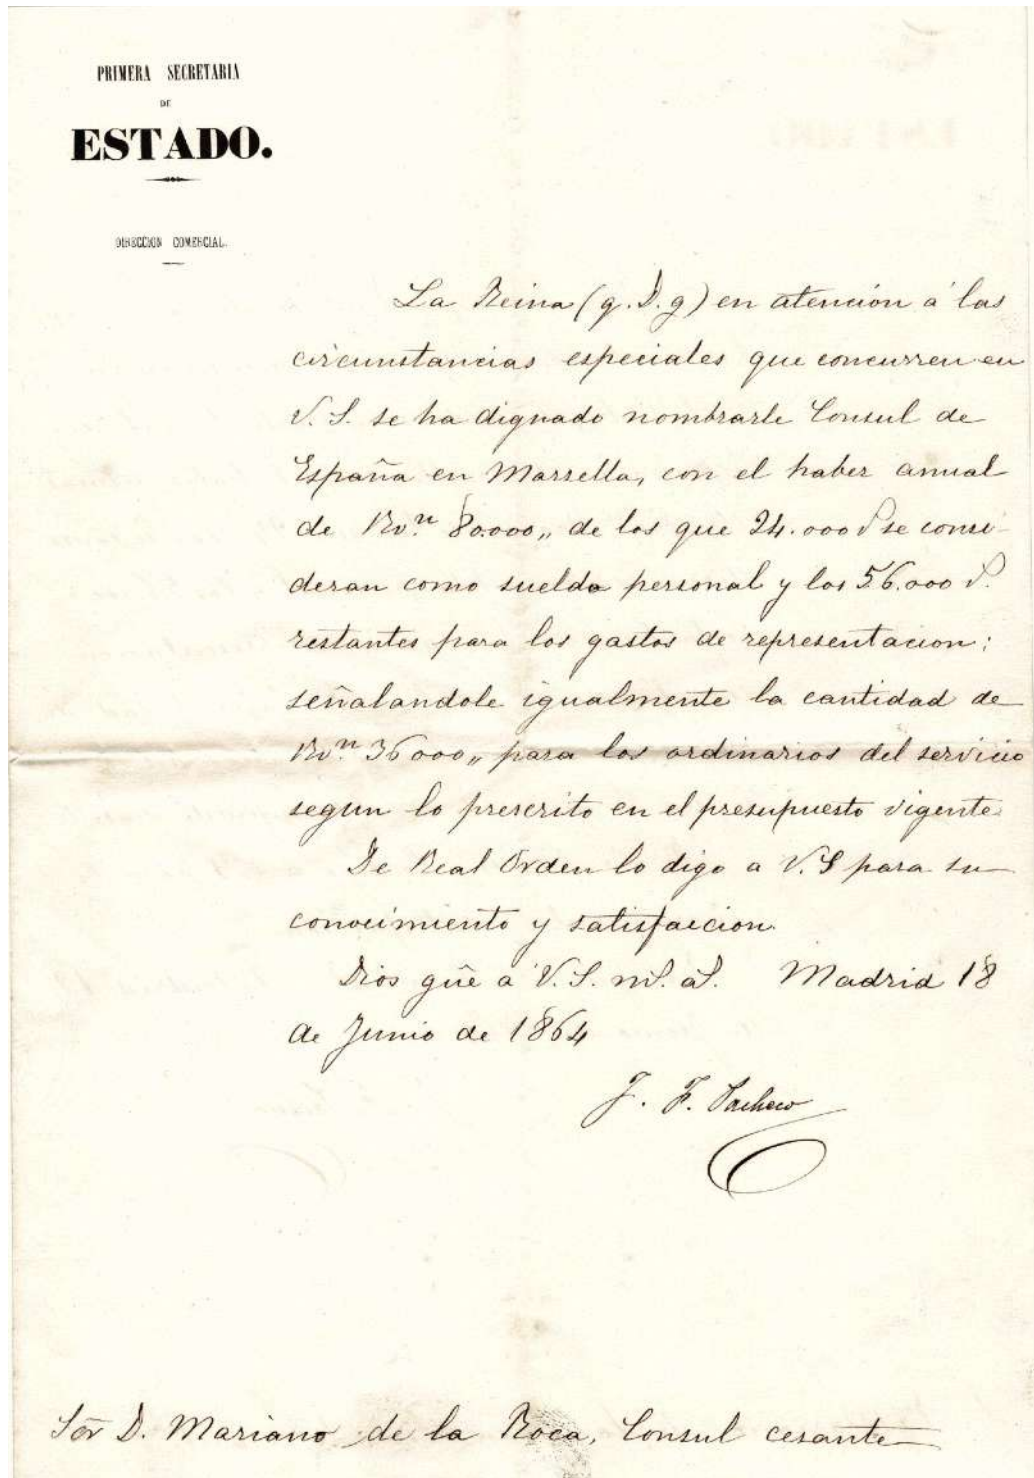 PRIMERA SECRETARIA
DE
ESTADO.
DIRECCION COMERCIAL.
La Reina (q. D. g) en atención á las
circunstancias especiales que concurren en
V. S. se ha dignado nombrarle Consul de
España en Marsella, con el haber anual
de Rv.n 80.000,, de los que 24.000 se consi-
deran como sueldo personal y los 56.000
restantes para los gastos de representacion;
señalandole igualmente la cantidad de
Rv.n 36000,, para los ordinarios del servicio
segun lo prescrito en el presupuesto vigente.
De Real Orden lo digo a V. S para su
conocimiento y satisfaccion.
Dios gũe a V. S. m.s a.s. Madrid 18
de Junio de 1864
J. F. Pacheco
Sor D. Mariano de la Roca, Consul cesante